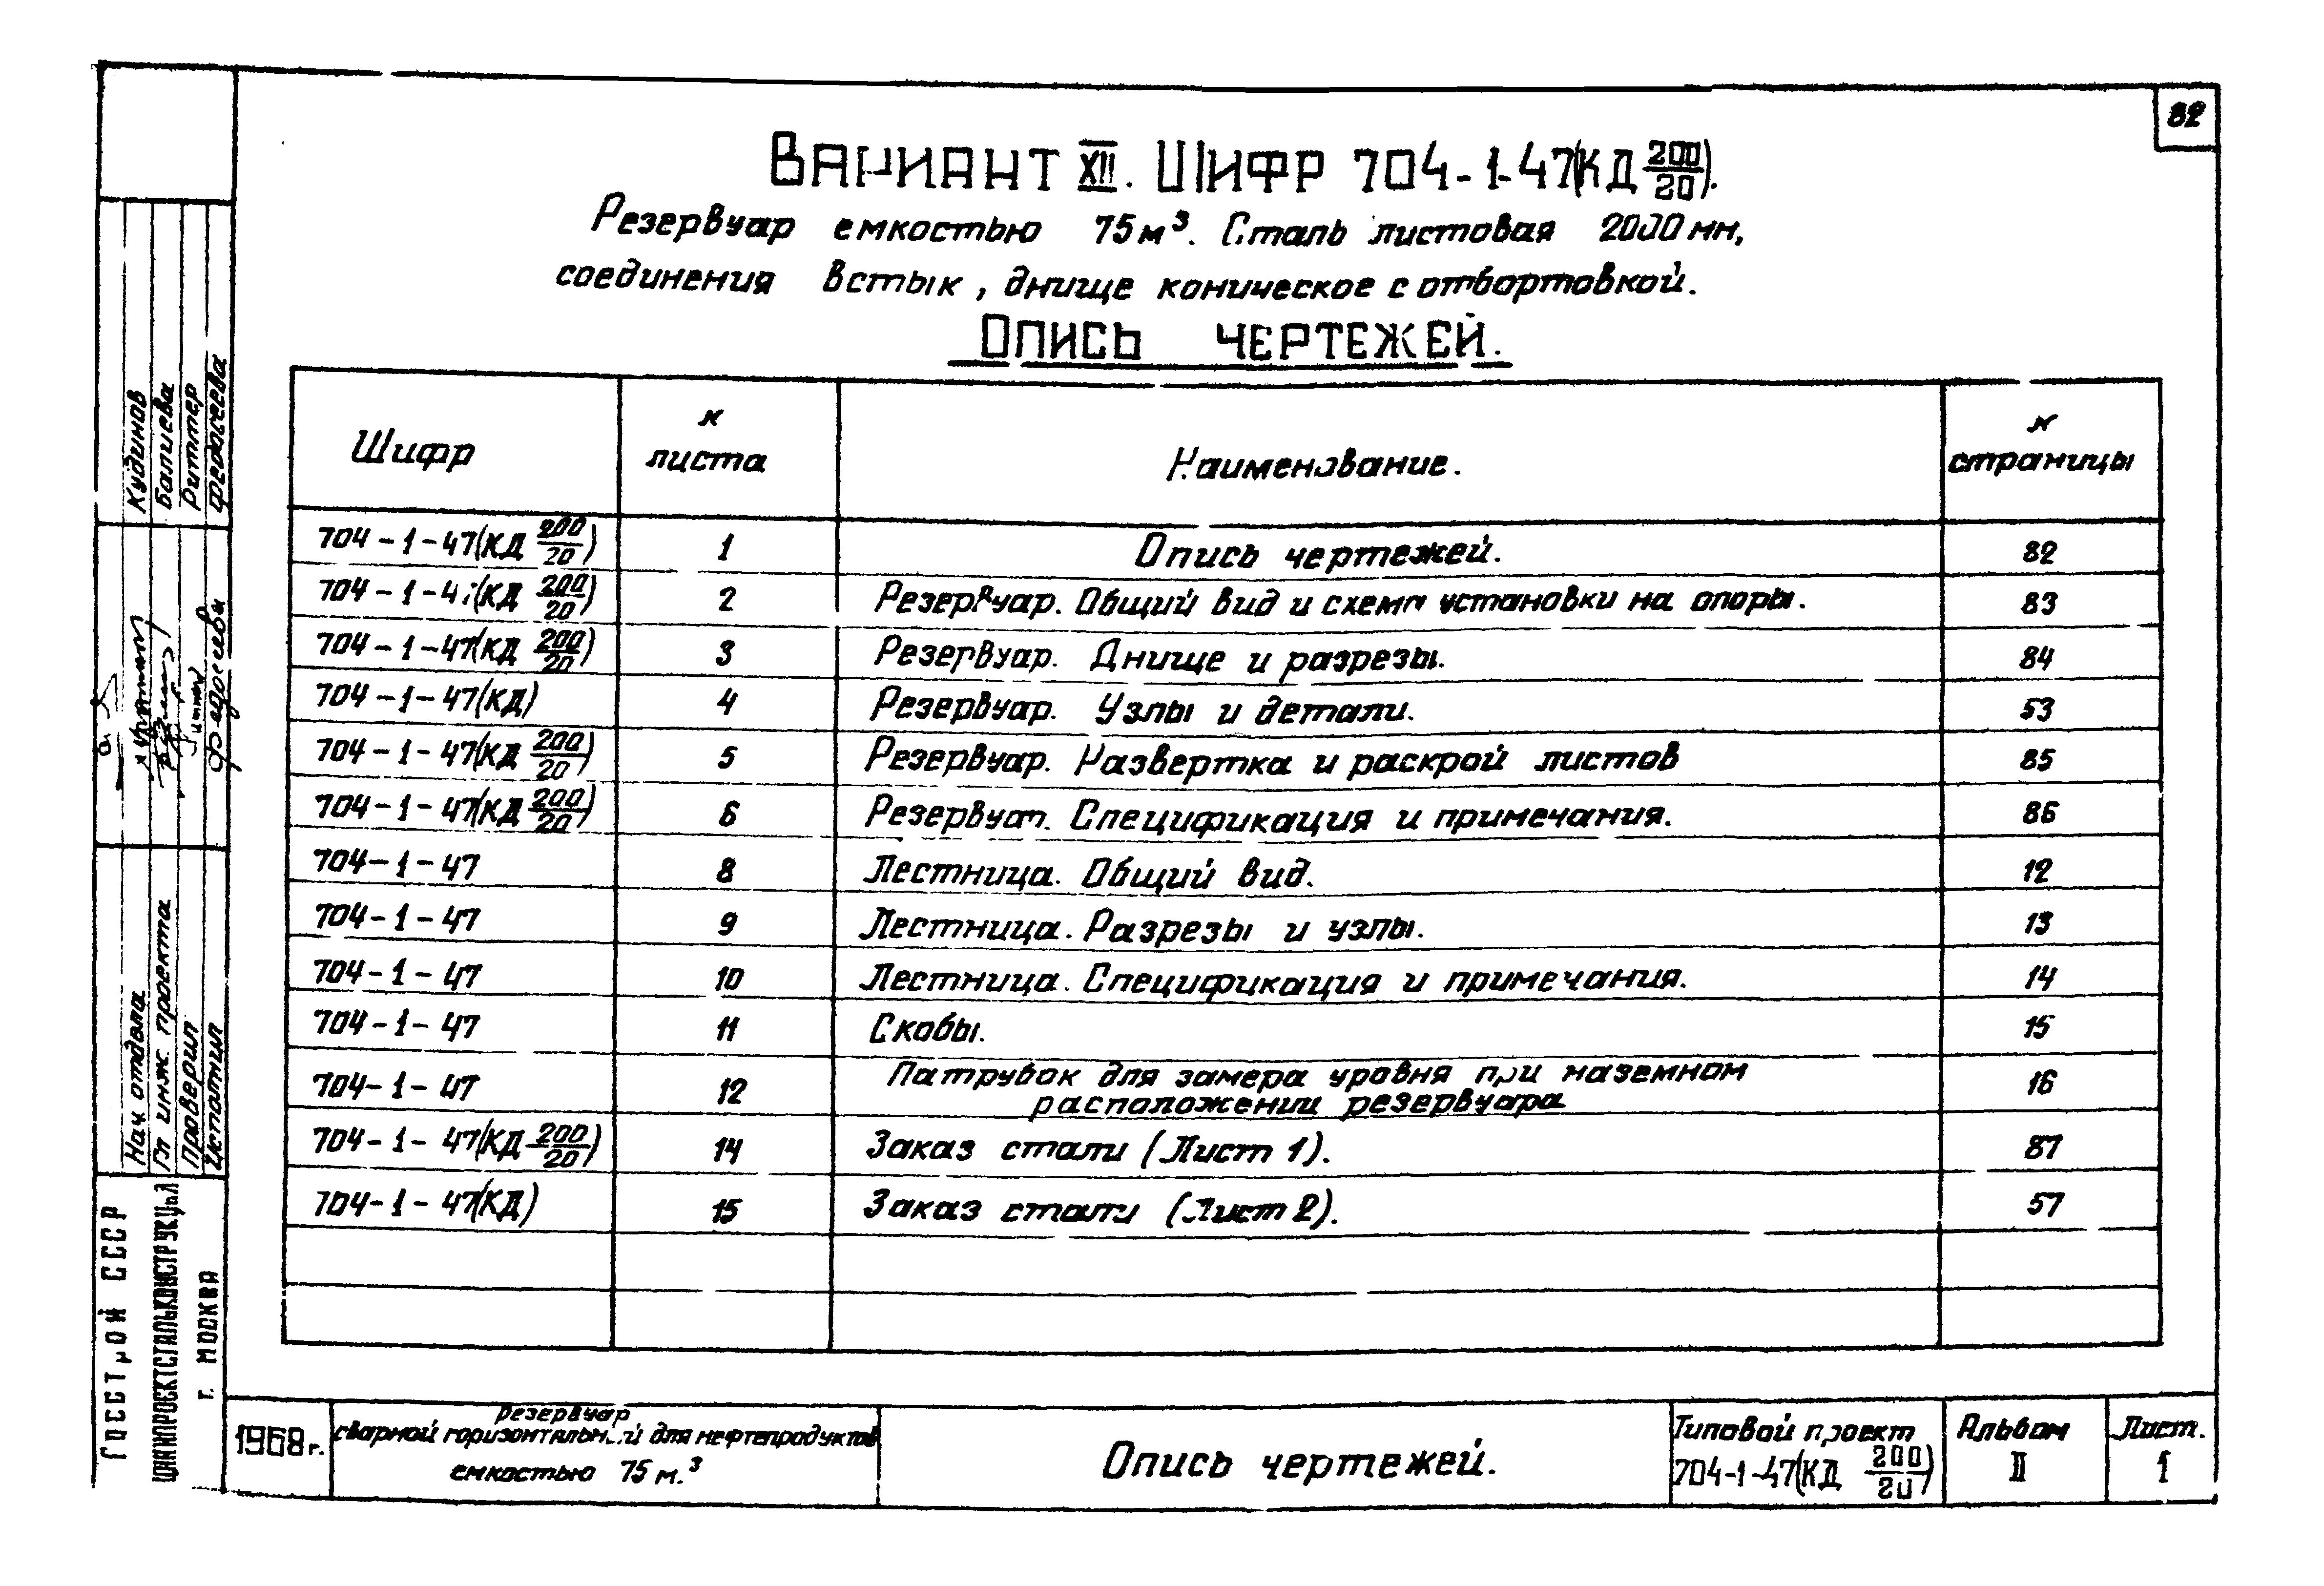 82
ВАРИАНТ XII. ШИФР 704-1-47(КД 200/20).
Резервуар емкостью 75м³. Сталь листовая 2000 мм,
соединения встык, днище коническое с отбортовкой.
ОПИСЬ ЧЕРТЕЖЕЙ.
Шифр | N листа | Наименование. | N страницы
704-1-47(КД 200/20) | 1 | Опись чертежей. | 82
704-1-47(КД 200/20) | 2 | Резервуар. Общий вид и схема установки на опоры. | 83
704-1-47(КД 200/20) | 3 | Резервуар. Днище и разрезы. | 84
704-1-47(КД) | 4 | Резервуар. Узлы и детали. | 53
704-1-47(КД 200/20) | 5 | Резервуар. Развертка и раскрой листов | 85
704-1-47(КД 200/20) | 6 | Резервуар. Спецификация и примечания. | 86
704-1-47 | 8 | Лестница. Общий вид. | 12
704-1-47 | 9 | Лестница. Разрезы и узлы. | 13
704-1-47 | 10 | Лестница. Спецификация и примечания. | 14
704-1-47 | 11 | Скобы. | 15
704-1-47 | 12 | Патрубок для замера уровня при наземном
расположении резервуара | 16
704-1-47(КД 200/20) | 14 | Заказ стали (Лист 1). | 87
704-1-47(КД) | 15 | Заказ стали (Лист 2). | 57
Нач отдела Кудинов
Гл инж. проекта Балиева
Проверил Риттер
Исполнил Федосеева
ГОССТРОЙ СССР
ЦНИИПРОЕКТСТАЛЬКОНСТРУКЦИЯ
г. МОСКВА
1968г.
Резервуар
сварной горизонтальный для нефтепродуктов
емкостью 75 м.³
Опись чертежей.
Типовой проект
704-1-47(КД 200/20)
Альбом
II
Лист.
1